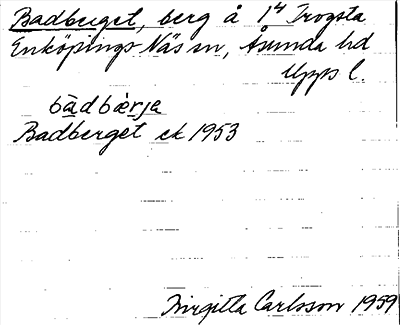 Badberget, berg å 1⁴ Trogsta
Enköpings-Näs sn, Åsunda hd
Upps l.
bàdbæ̀rja
Badberget ek 1953
Birgitta Carlsson 1959